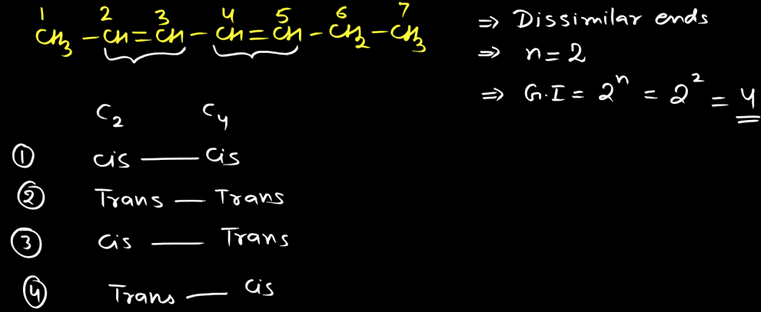 1 2 3 4 5 6 7
CH₃ – CH = CH – CH = CH – CH₂ – CH₃
⇒ Dissimilar ends
⇒ n = 2
⇒ G.I = 2ⁿ = 2² = 4
C₂ C₄
① Cis — Cis
② Trans — Trans
③ Cis — Trans
④ Trans — Cis